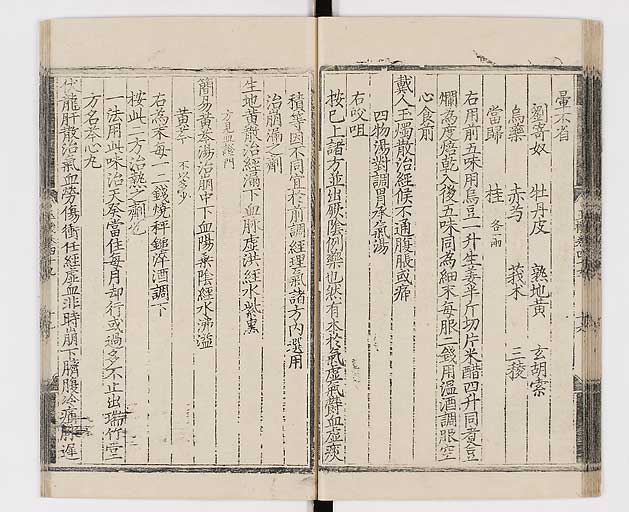 暈不省
劉寄奴 牡丹皮 熟地黄 玄胡索
烏藥 赤芍 莪朮 三稜
當歸 桂 各一兩
右用前五味用烏豆一升生姜半斤切片米醋四升同煑豆
爛為度焙乾入後五味同為細末每服二錢用溫酒調服空
心食前
戴人玉燭散治經候不通腹脹或痛
四物湯對調胃承氣湯
右㕮咀
按已上諸方並出厥陰例藥也然有本於氣虚氣欝血虚痰
積等因不同宜於前調經理氣諸方内選用
治崩漏之劑
生地黄散治經漏下血脉虚洪經水紫黑
方見血證門
簡易黄芩湯治崩中下血陽乗陰經水沸溢
黄芩 不以多少
右為末每一二錢燒秤錘淬酒調下
按此二方治熱之劑也
一法用此味治天癸當住每月却行或過多不止出瑞竹堂
方名芩心丸
伏龍肝散治氣血勞傷衝任經虚血非時崩下臍腹冷痛脉遲